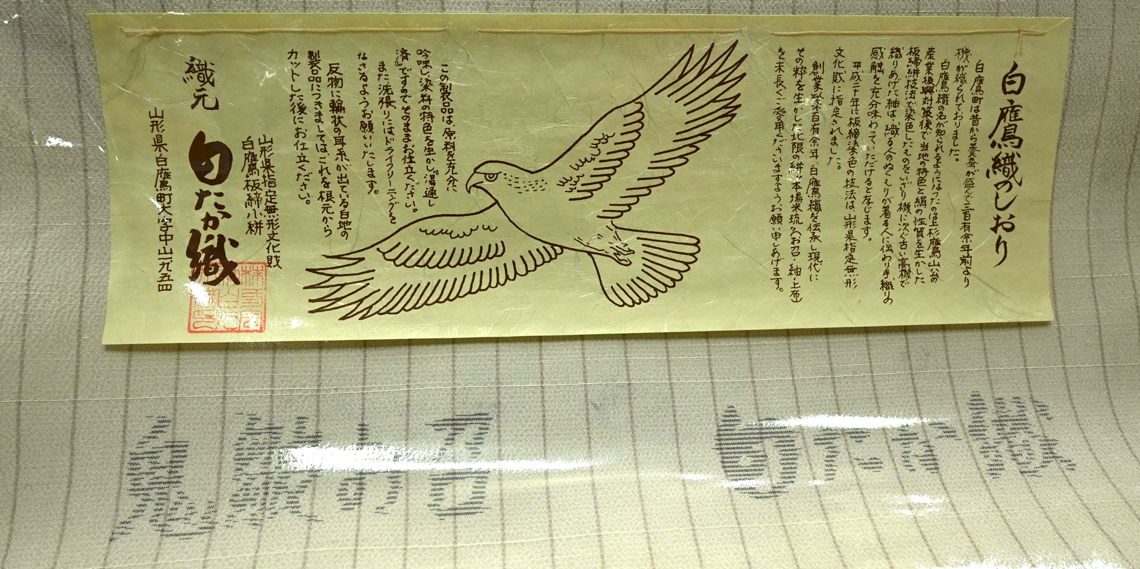 白鷹織のしおり
白鷹町は昔から養蚕が盛んで二百有余年前より
機が織られておりました。
白鷹織の名が知られるようになったのは上杉鷹山公の
産業復興対策後で当地の特色と絹の性質を生かした
板締絣技法で染色したものをいざり機に次ぐ古い高機で
織りあげた紬は、織る人のぬくもりが着る人に伝わり手織りの
感触を充分味わっていただけると存じます。
平成二十年に板締染色の技法は山形県指定無形
文化財に指定されました。
創業以来百有余年、白鷹織を伝承し現代に
その粋を生かした北限の絣「本場米琉」「お召・紬・上布」
を末長くご愛用くださいますようお願い申しあげます。
この製品は、原料を充分に
吟味し、染料の特色を生かし「湯通し
済」ですのでそのままお仕立ください。
また洗張りにはドライクリーニングを
なさるようお願いいたします。
反物に輪状の耳糸が出ている白地の
製品につきましてはこれを根元から
カットした後にお仕立ください。
山形県指定無形文化財
白鷹板締小絣
織元
白たか織
山形県白鷹町大字中山九五四
白たか織
鬼皺お召